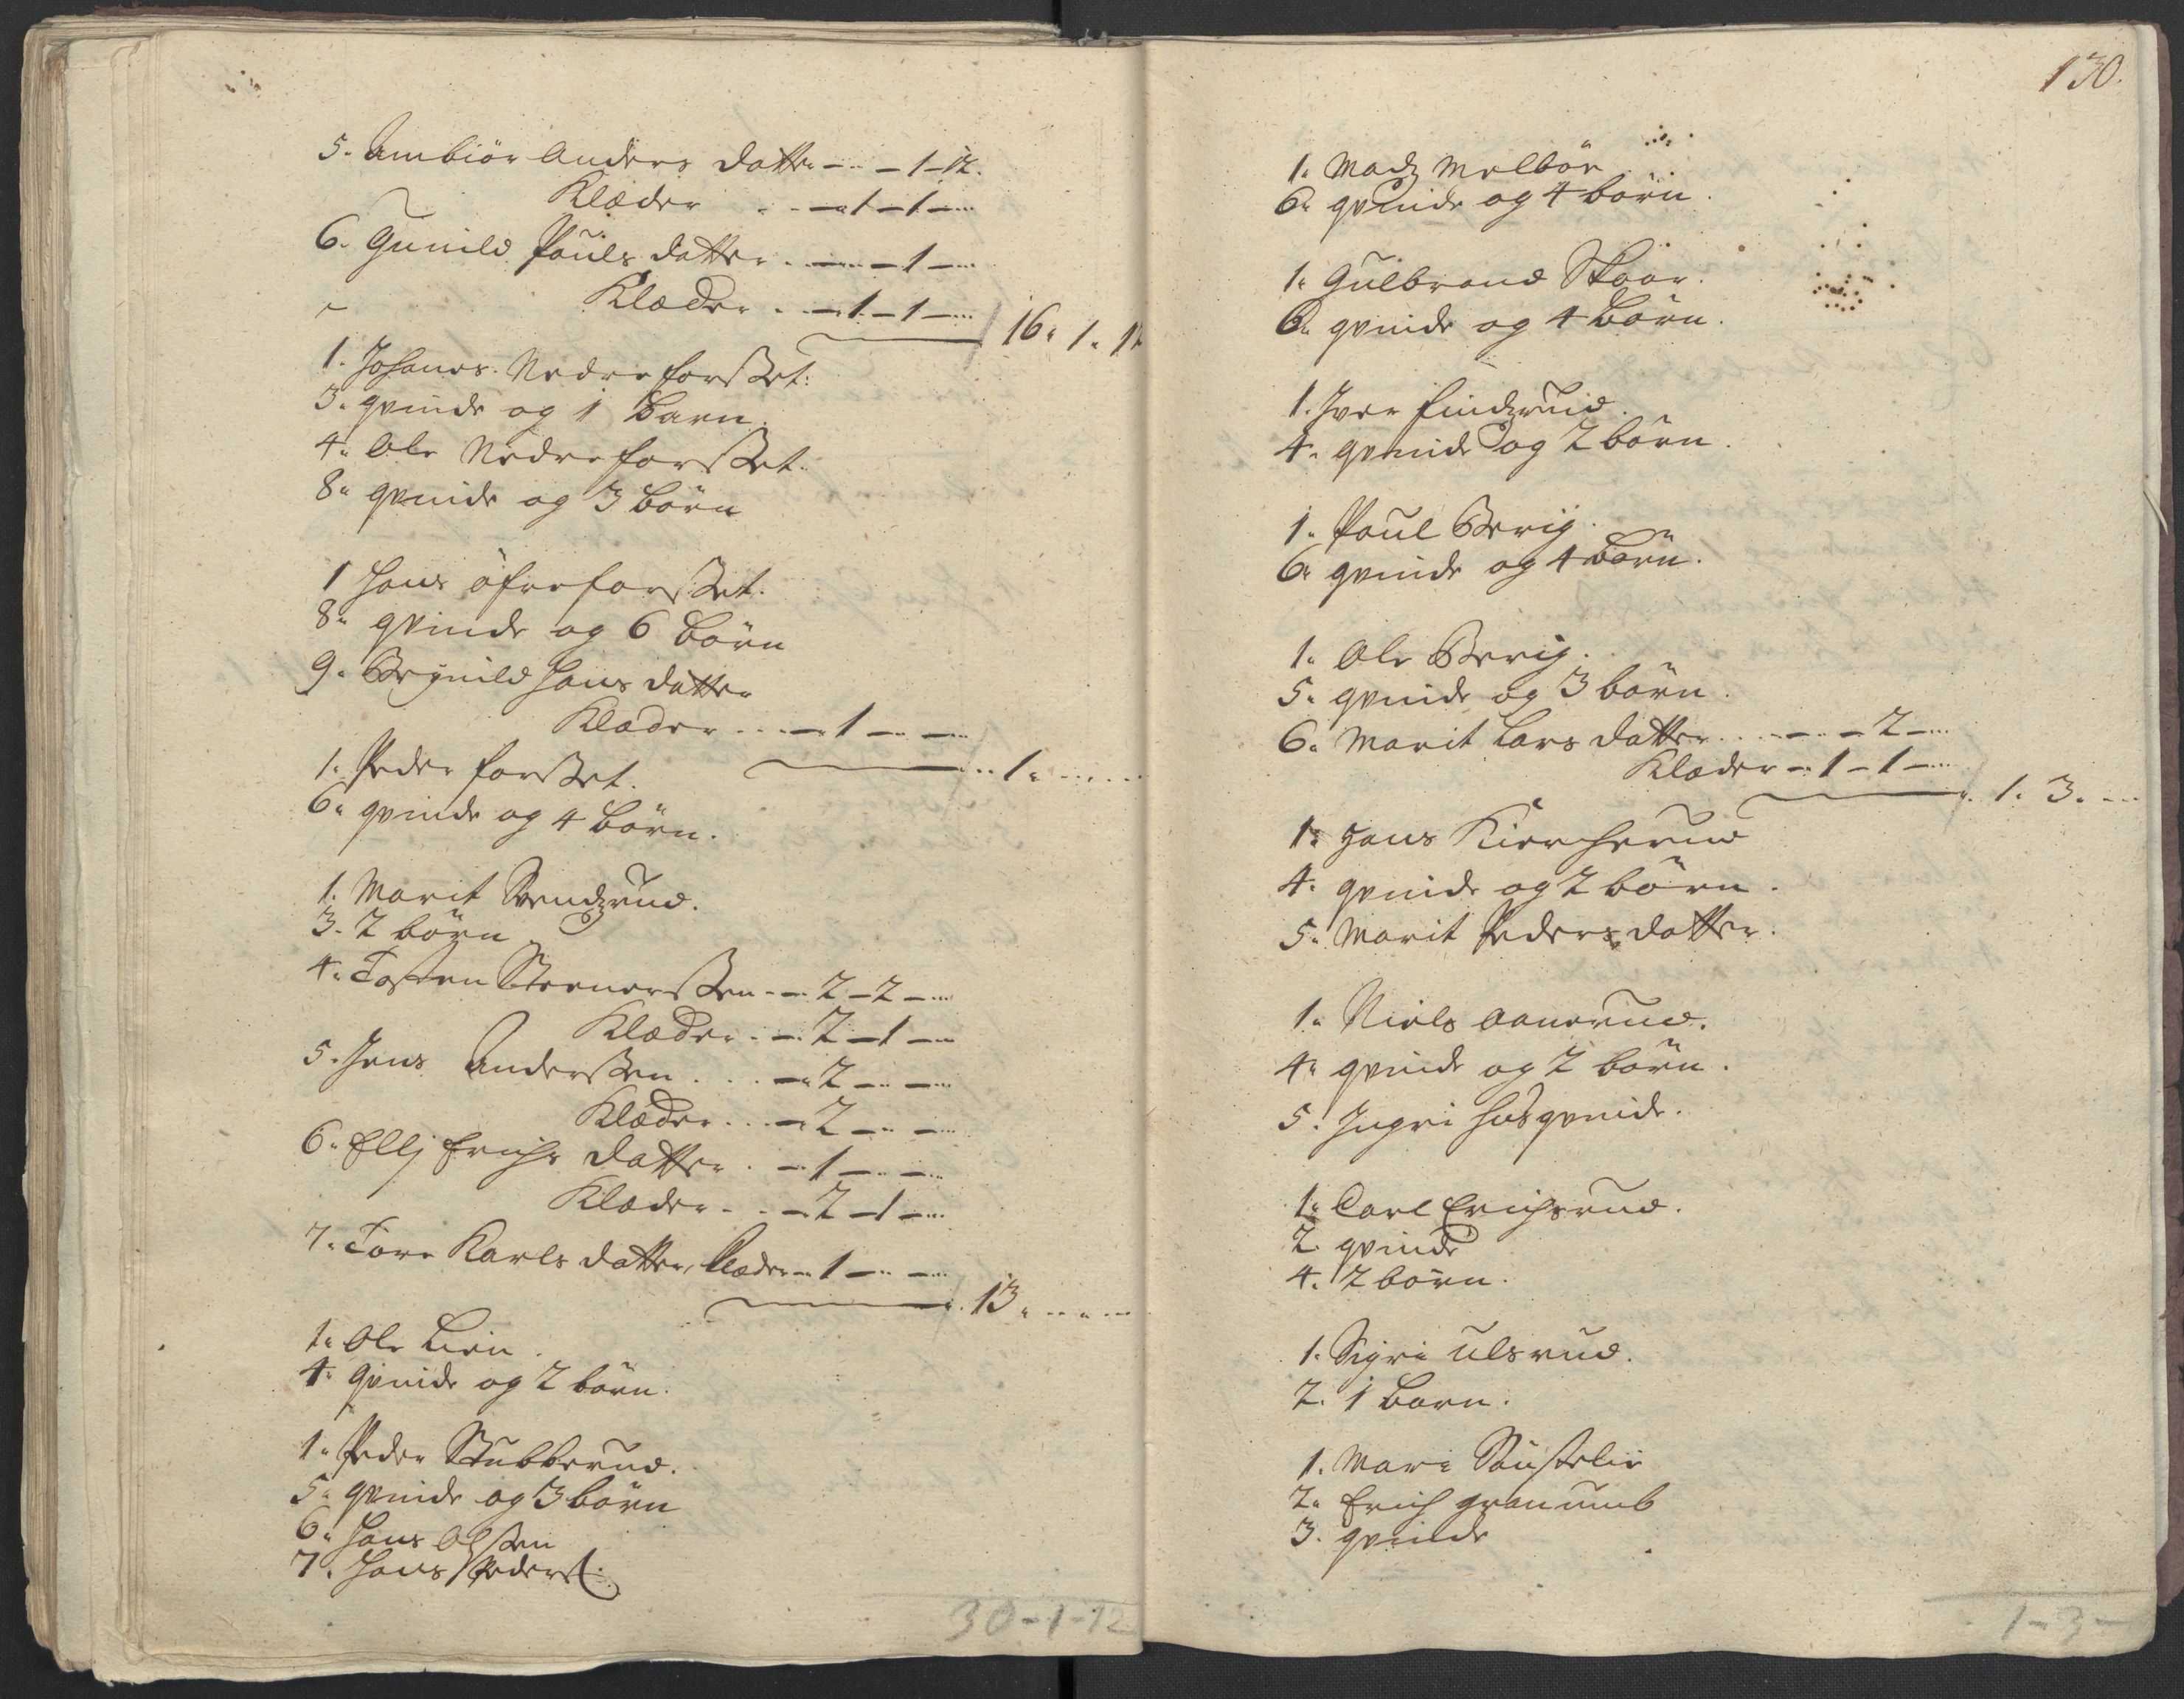 5. Ambiör Anders datter - - 1 - 12.
Klæder . . - 1 - 1 - ...
6. Gunild Pouls datter . - - 1 - ...
Klæder . . - 1 - 1 - ...
16. 1. 12
1. Johanes Nedreforsset.
3. qvinde og 1 barn.
4. Ole Nedreforsset.
8. qvinde og 3 börn
1 Hans öfreforsset.
8. qvinde og 6 börn
9. Begnild Hans datter
Klæder . . . - 1 - - ...
. . 1. . . .
1. Peder forsset.
6. qvinde og 4 börn.
1. Marit Svendzrud.
3. 2 börn
4. Tosten Steenerssen - - 2 - 2 - ...
Klæder . - 2 - 1 - ...
5. Jens Anderssen . . . - 2 - - ...
Klæder . . . - 2 - - ...
6. Ellj Erichs datter . - 1 - - ...
Klæder . . - 2 - 1 - ...
7. Tore Karls datter, klæder - 1 - - ...
13. . . . .
1. Ole Lien.
4. Qvinde og 2 börn.
1. Peder Stubberud.
5. qvinde og 3 börn
6. Hans Olssen
7. Hans Peders.
30-1-12
130.
1. Madz Melbör
6. qvinde og 4 börn.
1. Gulbrand Skaar.
6. qvinde og 4 börn.
1. Iver findzrud.
4. qvinde og 2 börn.
1. Poul Berig.
6. qvinde og 4 börn.
1. Ole Berig.
5. qvinde og 3 börn.
6. Marit Lars datter . . . - - 2 - ...
Klæder - 1 - 1 - ...
1. 3. ...
1. Hans Kiercherud
4. qvinde og 2 börn.
5. Marit Peders datter.
1. Niels Aanerud.
4. qvinde og 2 börn.
5. Ingri husqvinde.
1. Carl Erichsrud.
2. qvinde
4. 2 börn.
1. Sigri Ulsrud.
2. 1 barn.
1. Mari
2. Erich Granumb
3. qvinde
1-3-